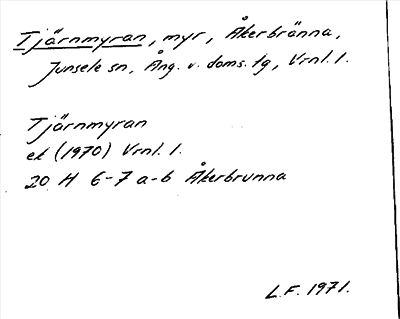 Tjärnmyran, myr, Åkerbränna,
Junsele sn, Ång. v. doms. tg, Vrnl. 1.
Tjärnmyran
ek (1970) Vrnl. 1.
20 H 6-7 a-b Åkerbrunna
L.F. 1971.